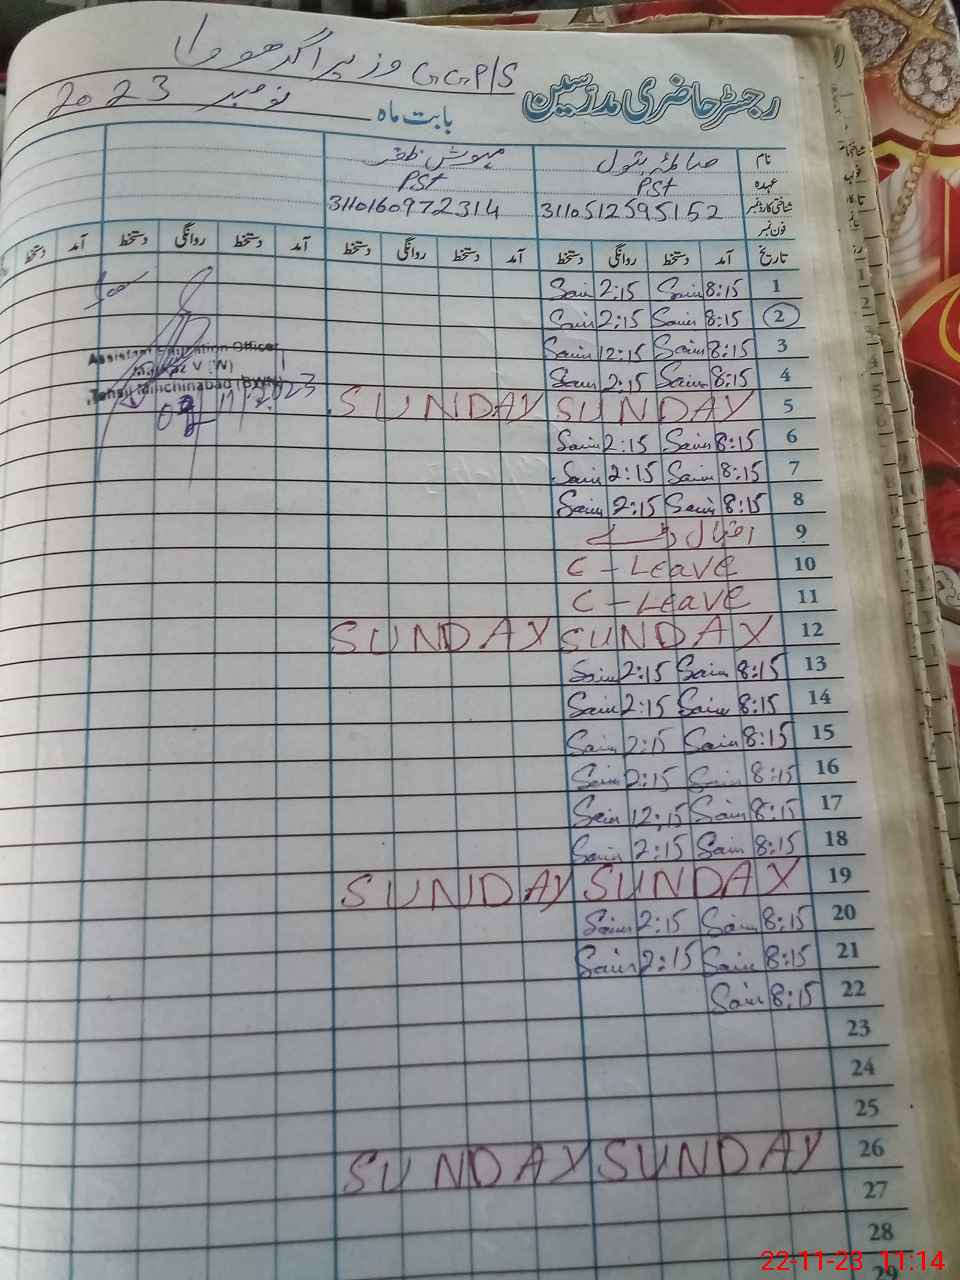 G.G.P/S وزیرا گڈھولا
رجسٹر حاضری مدرسین
بابت ماہ نومبر 2023
نام صائمہ بتول مہوش ظفر
عہدہ PST PST
شناختی کارڈ نمبر 3110512595152 3110160972314
فون نمبر
تاریخ آمد دستخط روانگی دستخط آمد دستخط روانگی دستخط آمد دستخط روانگی دستخط آمد دستخط
1 8:15 Saim 2:15 Saim
2 8:15 Saim 2:15 Saim
3 8:15 Saim 12:15 Saim
4 8:15 Saim 2:15 Saim
5 SUNDAY SUNDAY
6 8:15 Saim 2:15 Saim
7 8:15 Saim 2:15 Saim
8 8:15 Saim 2:15 Saim
9 اقبال ڈے
10 C-Leave
11 C-Leave
12 SUNDAY SUNDAY
13 8:15 Saim 2:15 Saim
14 8:15 Saim 2:15 Saim
15 8:15 Saim 2:15 Saim
16 8:15 Saim 2:15 Saim
17 8:15 Saim 12:15 Saim
18 8:15 Saim 2:15 Saim
19 SUNDAY SUNDAY
20 8:15 Saim 2:15 Saim
21 8:15 Saim 2:15 Saim
22 8:15 Saim
23
24
25
26 SUNDAY SUNDAY
27
28
29
Assistant Education Officer
Markaz V (W)
Tehsil Minchinabad (BWN)
11-2023
22-11-23 11:14